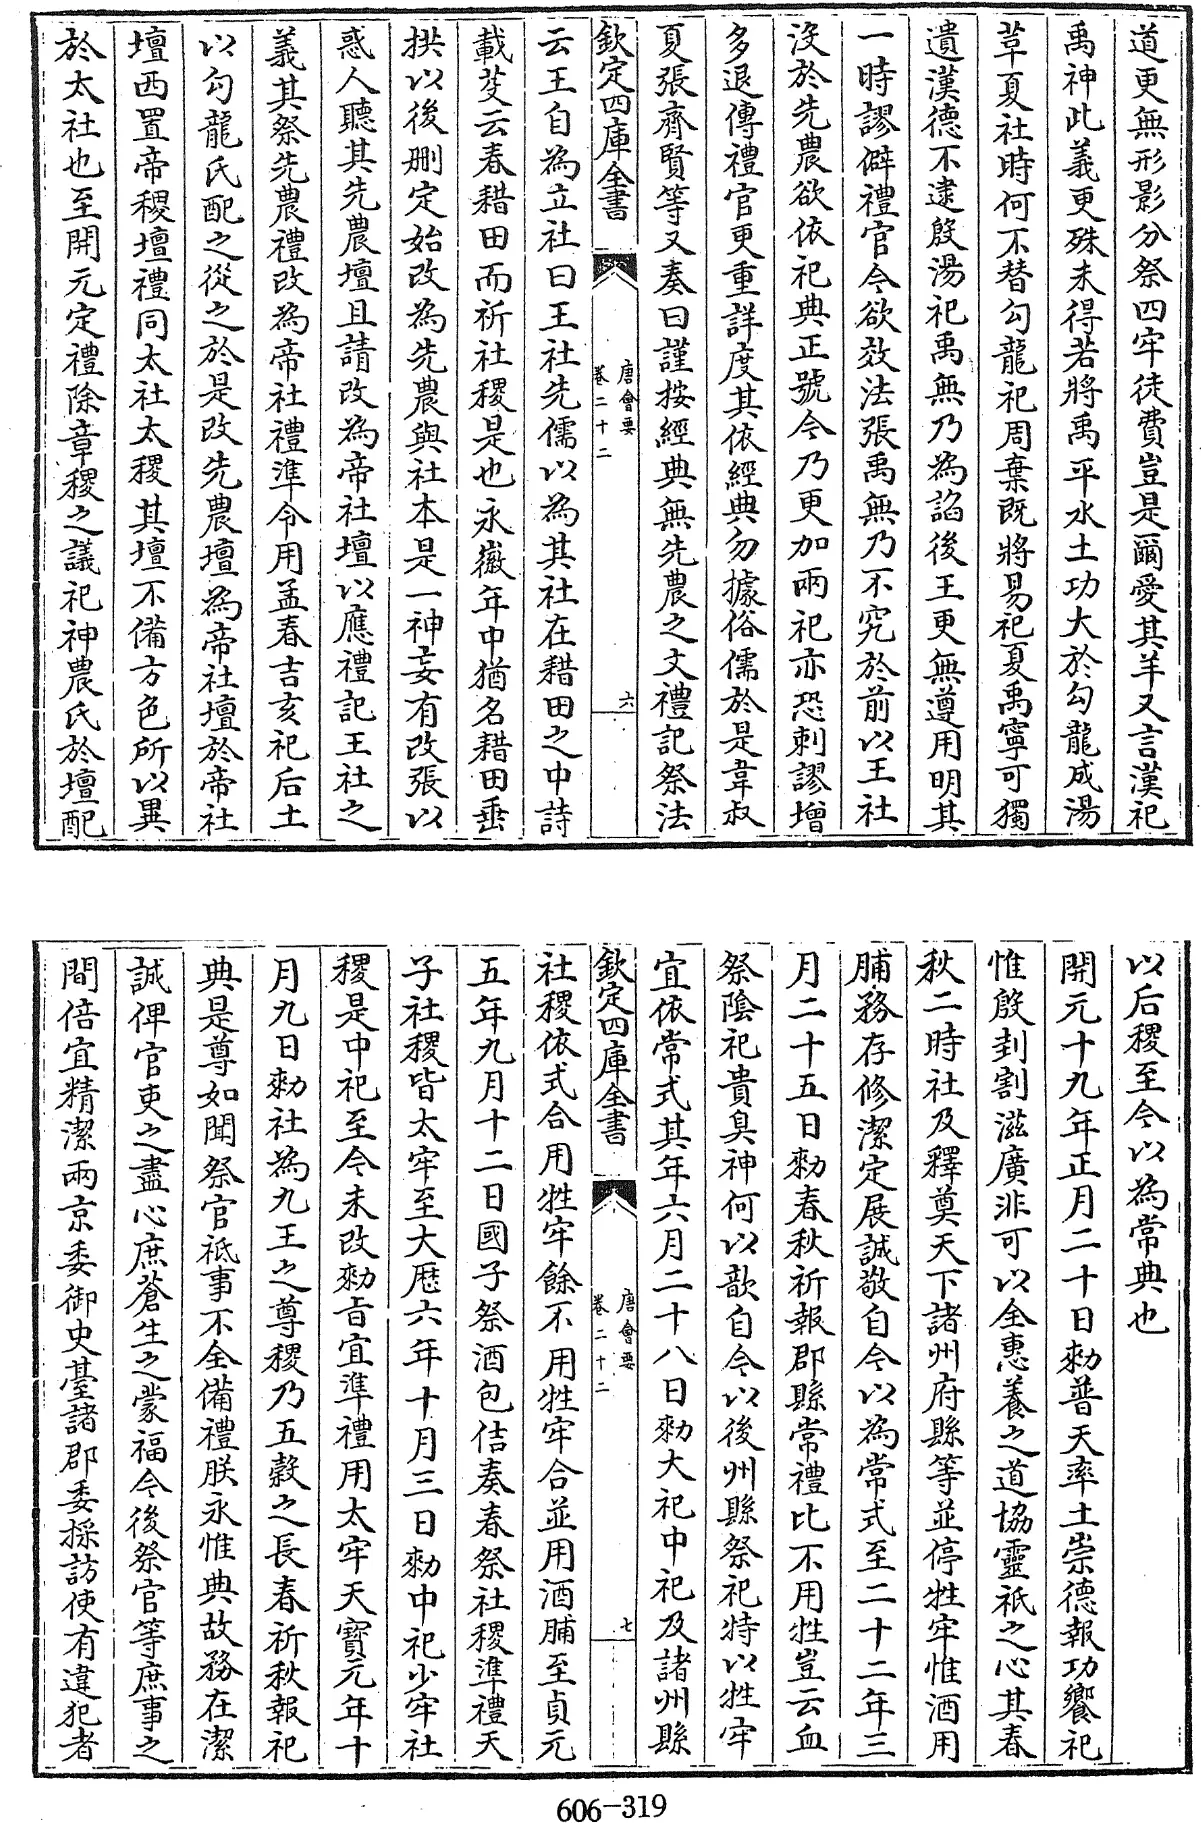 道更無形影分祭四牢徒費豈是爾愛其羊又言漢祀
禹神此義更殊未得若將禹平水土功大於勾龍成湯
草夏社時何不替勾龍祀周棄既將易祀夏禹寧可獨
遺漢德不逮殷湯祀禹無乃為諂後王更無遵用明其
一時謬僻禮官今欲效法張禹無乃不究於前以王社
沒於先農欲依祀典正號今乃更加兩祀亦恐刺謬增
多退傳禮官更重詳度其依經典勿據俗儒於是韋叔
夏張齊賢等又奏曰謹按經典無先農之文禮記祭法
欽定四庫全書
唐會要
卷二十二
六
云王自為立社曰王社先儒以為其社在耤田之中詩
載芟云春耤田而祈社稷是也永徽年中猶名耤田垂
拱以後刪定始改為先農與社本是一神妄有改張以
惑人聽其先農壇且請改為帝社壇以應禮記王社之
義其祭先農禮改為帝社禮準令用孟春吉亥祀后土
以勾龍氏配之從之於是改先農壇為帝社壇於帝社
壇西置帝稷壇禮同太社太稷其壇不備方色所以異
於太社也至開元定禮除章稷之議祀神農氏於壇配
以后稷至今以為常典也
開元十九年正月二十日勑普天率土崇德報功饗祀
惟殷刲割滋廣非可以全惠養之道協靈祇之心其春
秋二時社及釋奠天下諸州府縣等並停牲牢惟酒用
脯務存修潔定展誠敬自今以為常式至二十二年三
月二十五日勑春秋祈報郡縣常禮比不用牲豈云血
祭陰祀貴臭神何以歆自今以後州縣祭祀特以牲牢
宜依常式其年六月二十八日勑大祀中祀及諸州縣
欽定四庫全書
唐會要
卷二十二
七
社稷依式合用牲牢餘不用牲牢合並用酒脯至貞元
五年九月十二日國子祭酒包佶奏春祭社稷準禮天
子社稷皆太牢至大厯六年十月三日勑中祀少牢社
稷是中祀至今未改勑旨宜準禮用太牢天寶元年十
月九日勑社為九王之尊稷乃五穀之長春祈秋報祀
典是尊如聞祭官祇事不全備禮朕永惟典故務在潔
誠俾官吏之盡心庶蒼生之蒙福今後祭官等庶事之
間倍宜精潔兩京委御史臺諸郡委採訪使有違犯者
606-319